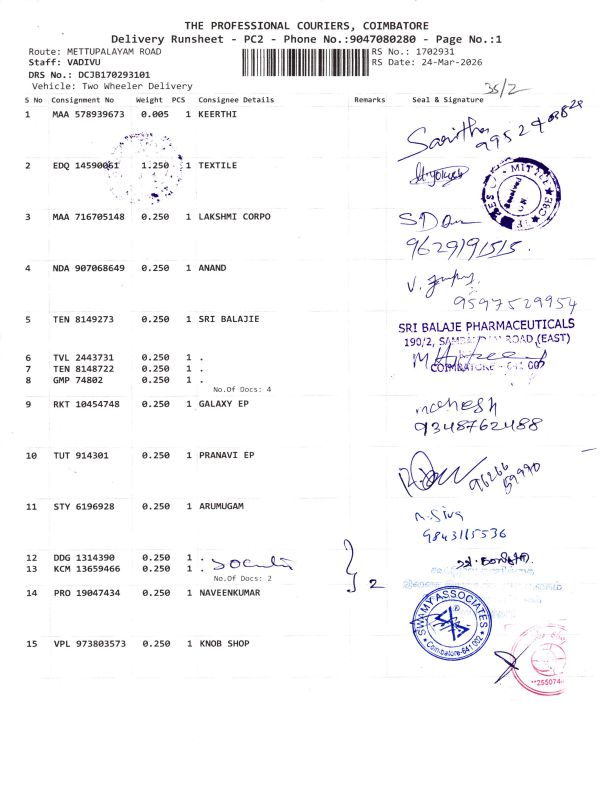 THE PROFESSIONAL COURIERS, COIMBATORE
Delivery Runsheet - PC2 - Phone No.:9047080280 - Page No.:1
Route: METTUPALAYAM ROAD
RS No.: 1702931
Staff: VADIVU
RS Date: 24-Mar-2026
DRS No.: DCJB170293101
Vehicle: Two Wheeler Delivery
35/2
S No Consignment No Weight PCS Consignee Details Remarks Seal & Signature
1 MAA 578939673 0.005 1 KEERTHI
2 EDQ 14590061 1.250 1 TEXTILE
3 MAA 716705148 0.250 1 LAKSHMI CORPO
9629191515.
4 NDA 907068649 0.250 1 ANAND
9597529954
5 TEN 8149273 0.250 1 SRI BALAJIE
SRI BALAJE PHARMACEUTICALS
190/2, ROAD,(EAST)
COIMBATORE - 641 007
6 TVL 2443731 0.250 1 .
7 TEN 8148722 0.250 1 .
8 GMP 74802 0.250 1 .
No.Of Docs: 4
9 RKT 10454748 0.250 1 GALAXY EP
mahesh
9348762488
10 TUT 914301 0.250 1 PRANAVI EP
96266 59990
11 STY 6196928 0.250 1 ARUMUGAM
9843115536
12 DDG 1314390 0.250 1 .
13 KCM 13659466 0.250 1 .
No.Of Docs: 2
2
14 PRO 19047434 0.250 1 NAVEENKUMAR
SWAMY ASSOCIATES
Coimbatore-641 002
15 VPL 973803573 0.250 1 KNOB SHOP